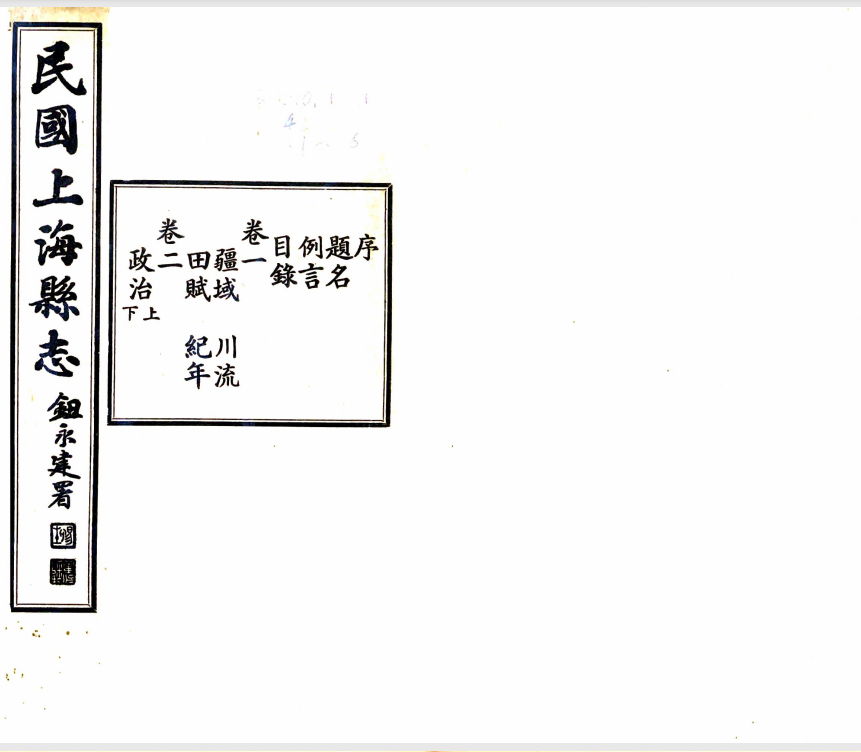 民國上海縣志
鈕永建署
序
題名
例言
目錄
卷一
疆域 川流
田賦 紀年
卷二
政治上下